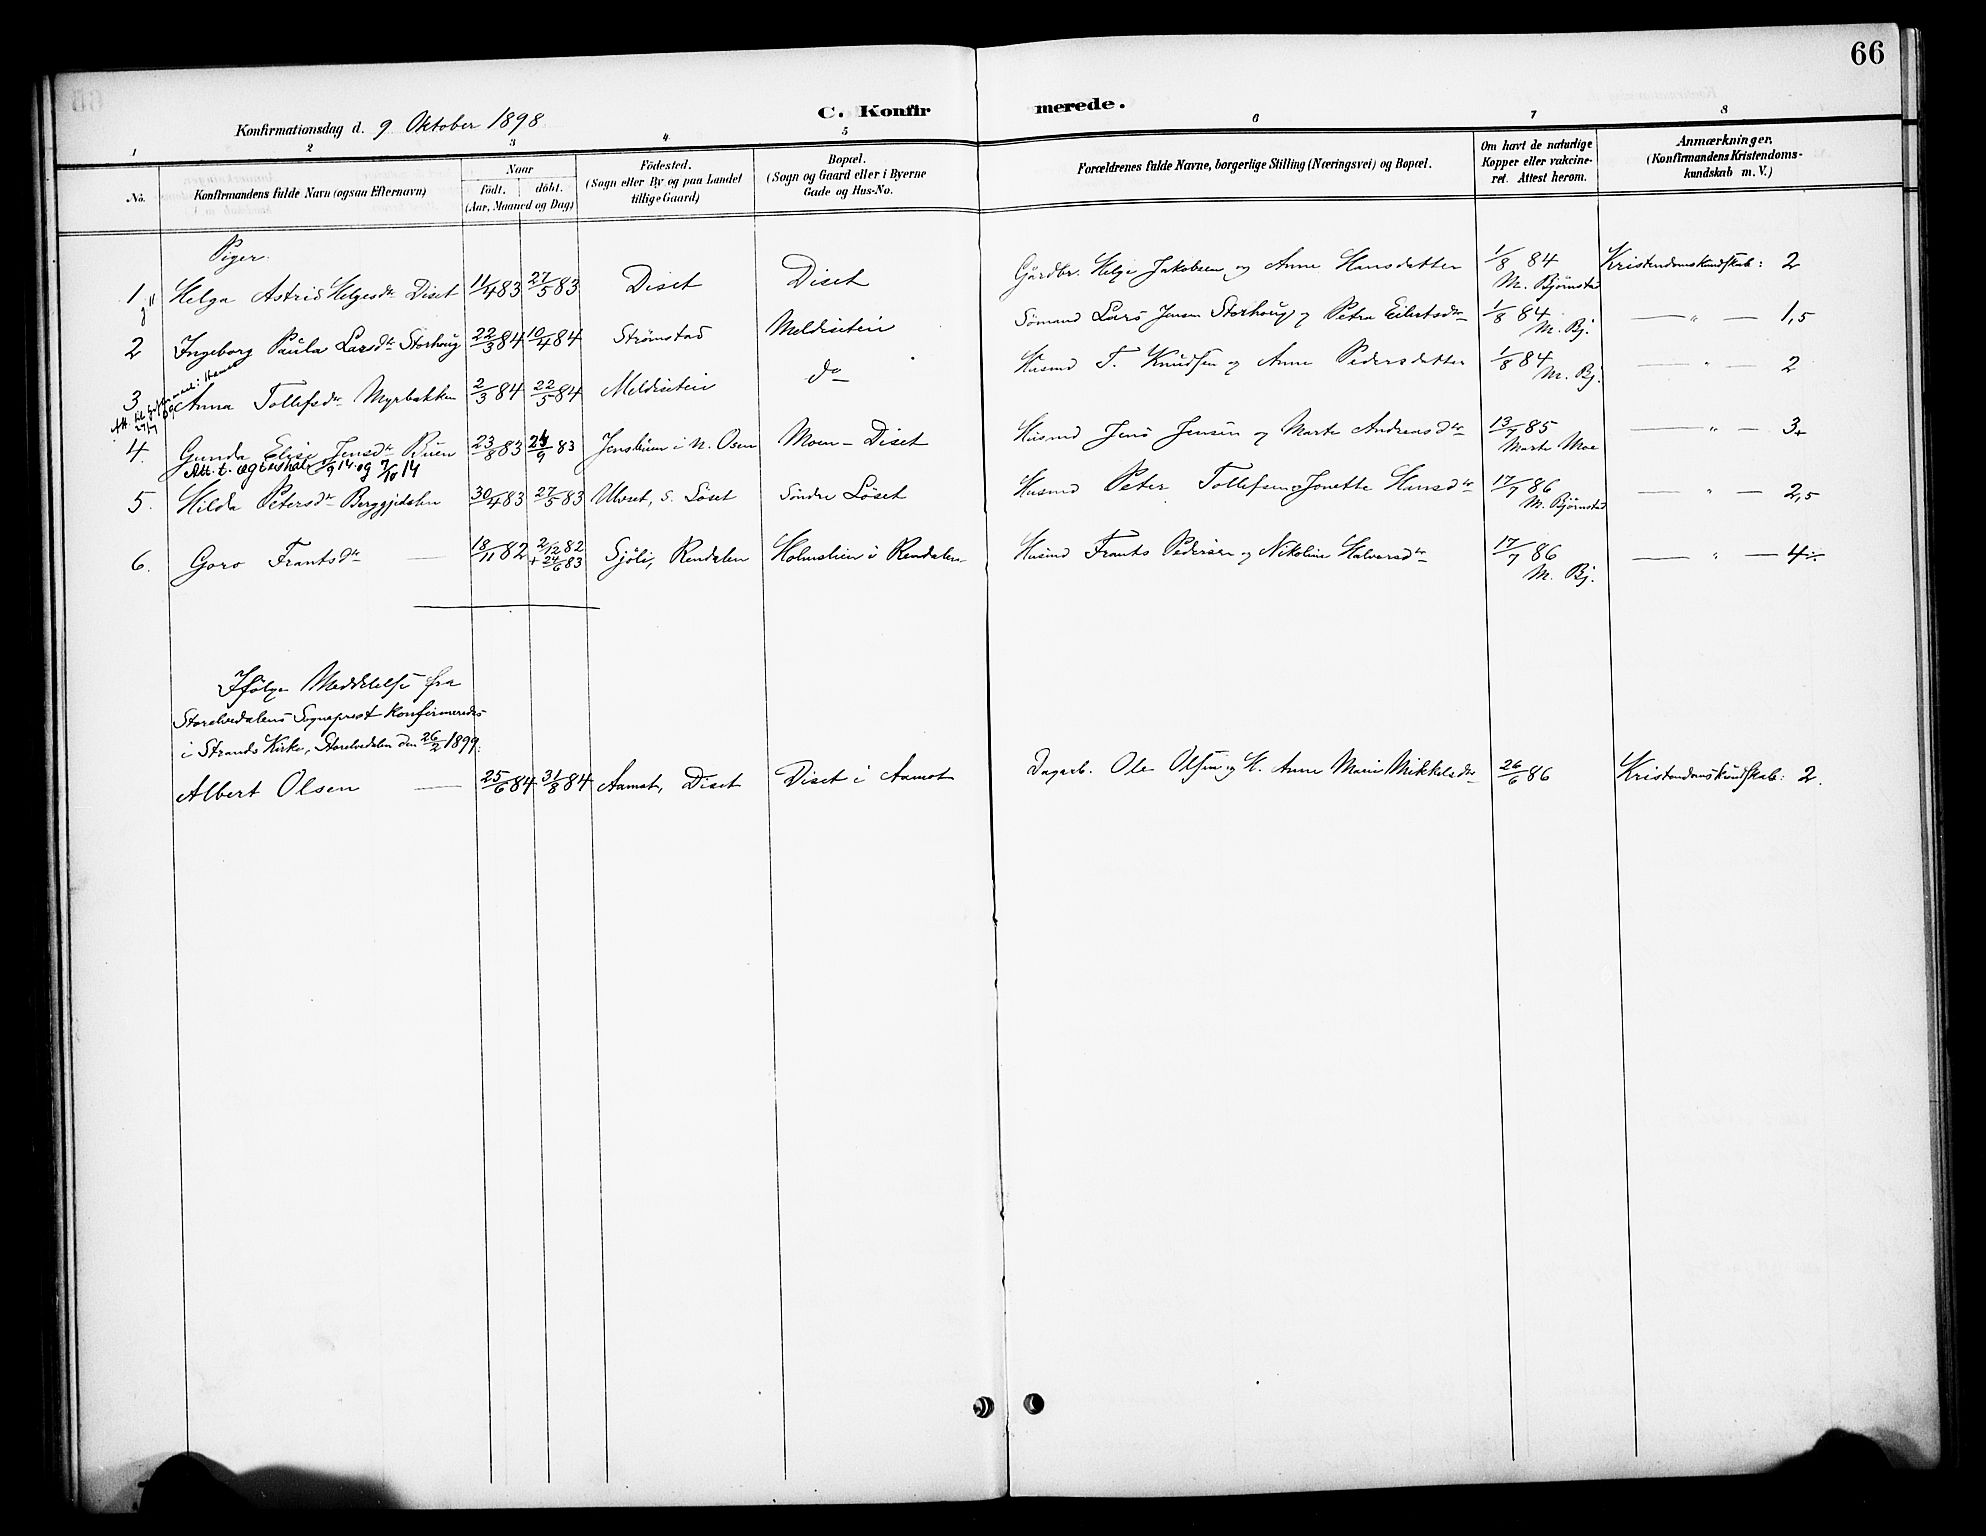 66
C. Konfirmerede.
Konfirmationsdag d. 9 Oktober 1898
1 2 3 4 5 6 7 8
No. Konfirmandens fulde Navn (ogsaa Efternavn) Naar Födt. döbt. (Aar, Maaned og Dag) Födested. (Sogn eller By og paa Landet tillige Gaard) Bopæl. (Sogn og Gaard eller i Byerne Gade og Hus-No. Forældrenes fulde Navne, borgerlige Stilling (Næringsvei) og Bopæl. Om havt de naturlige Kopper eller vakcineret. Attest herom. Anmærkninger, (Konfirmandens Kristendomskundskab m. V.)
Piger.
1 Helga Astrid Helgesdtr Diset 11/4 83 27/5 83 Diset Diset Gårdbr. Helge Jakobsen og Anne Hansdatter 1/8 84 M. Bjørnstad Kristendomskundskab: 2
2 Ingeborg Paula Larsdtr Storhoug 22/3 84 10/4 84 Strømstad Meldiseteien Sömand Lars Jensen Storhoug og Petra Eilertsdtr 1/8 84 M. Bj. — " — 1,5
3 Anna Tollefsdtr Myrbakken 2/3 84 22/5 84 Meldiseteien do Husmd T. Knudsen og Anne Pedersdatter 1/8 84 M. Bj. — " — 2
4. Gunda Elise Jensdtr Buen 23/8 83 24/9 83 Jensbuen i N. Osen Moen – Diset Husmd Jens Jensen og Marte Andreasdtr 13/7 85 Marte Moe — " — 3+
Att. t. ægteskab 9/9 14 og 7/10 14
5. Hilda Petersdtr Berggjedalen 30/4 83 27/5 83 Ulvset, S. Löset Söndre Löset Husmd Peter Tollefsen og Jonette Hansdtr 17/7 86 M. Bjørnstad — " — 2,5
6. Goro Frantsdtr — 18/11 82 2/12 82 + 24/6 83 Sjöli, Rendalen Holmslien i Rendalen Husmd Frants Pedersen og Nikoline Halvorsdtr 17/7 86 M. Bj. — " — 4÷
Ifölge Meddelelse fra
Storelvedalens Sogneprest konfirmeredes
i Strands Kirke, Storelvedalen den 26/2 1899:
Albert Olsen — 25/6 84 31/8 84 Aamot, Diset Diset i Aamot Dagarb. Ole Olsen og H. Anne Marie Mikkelsdtr 26/6 86 Kristendomskundskab: 2.